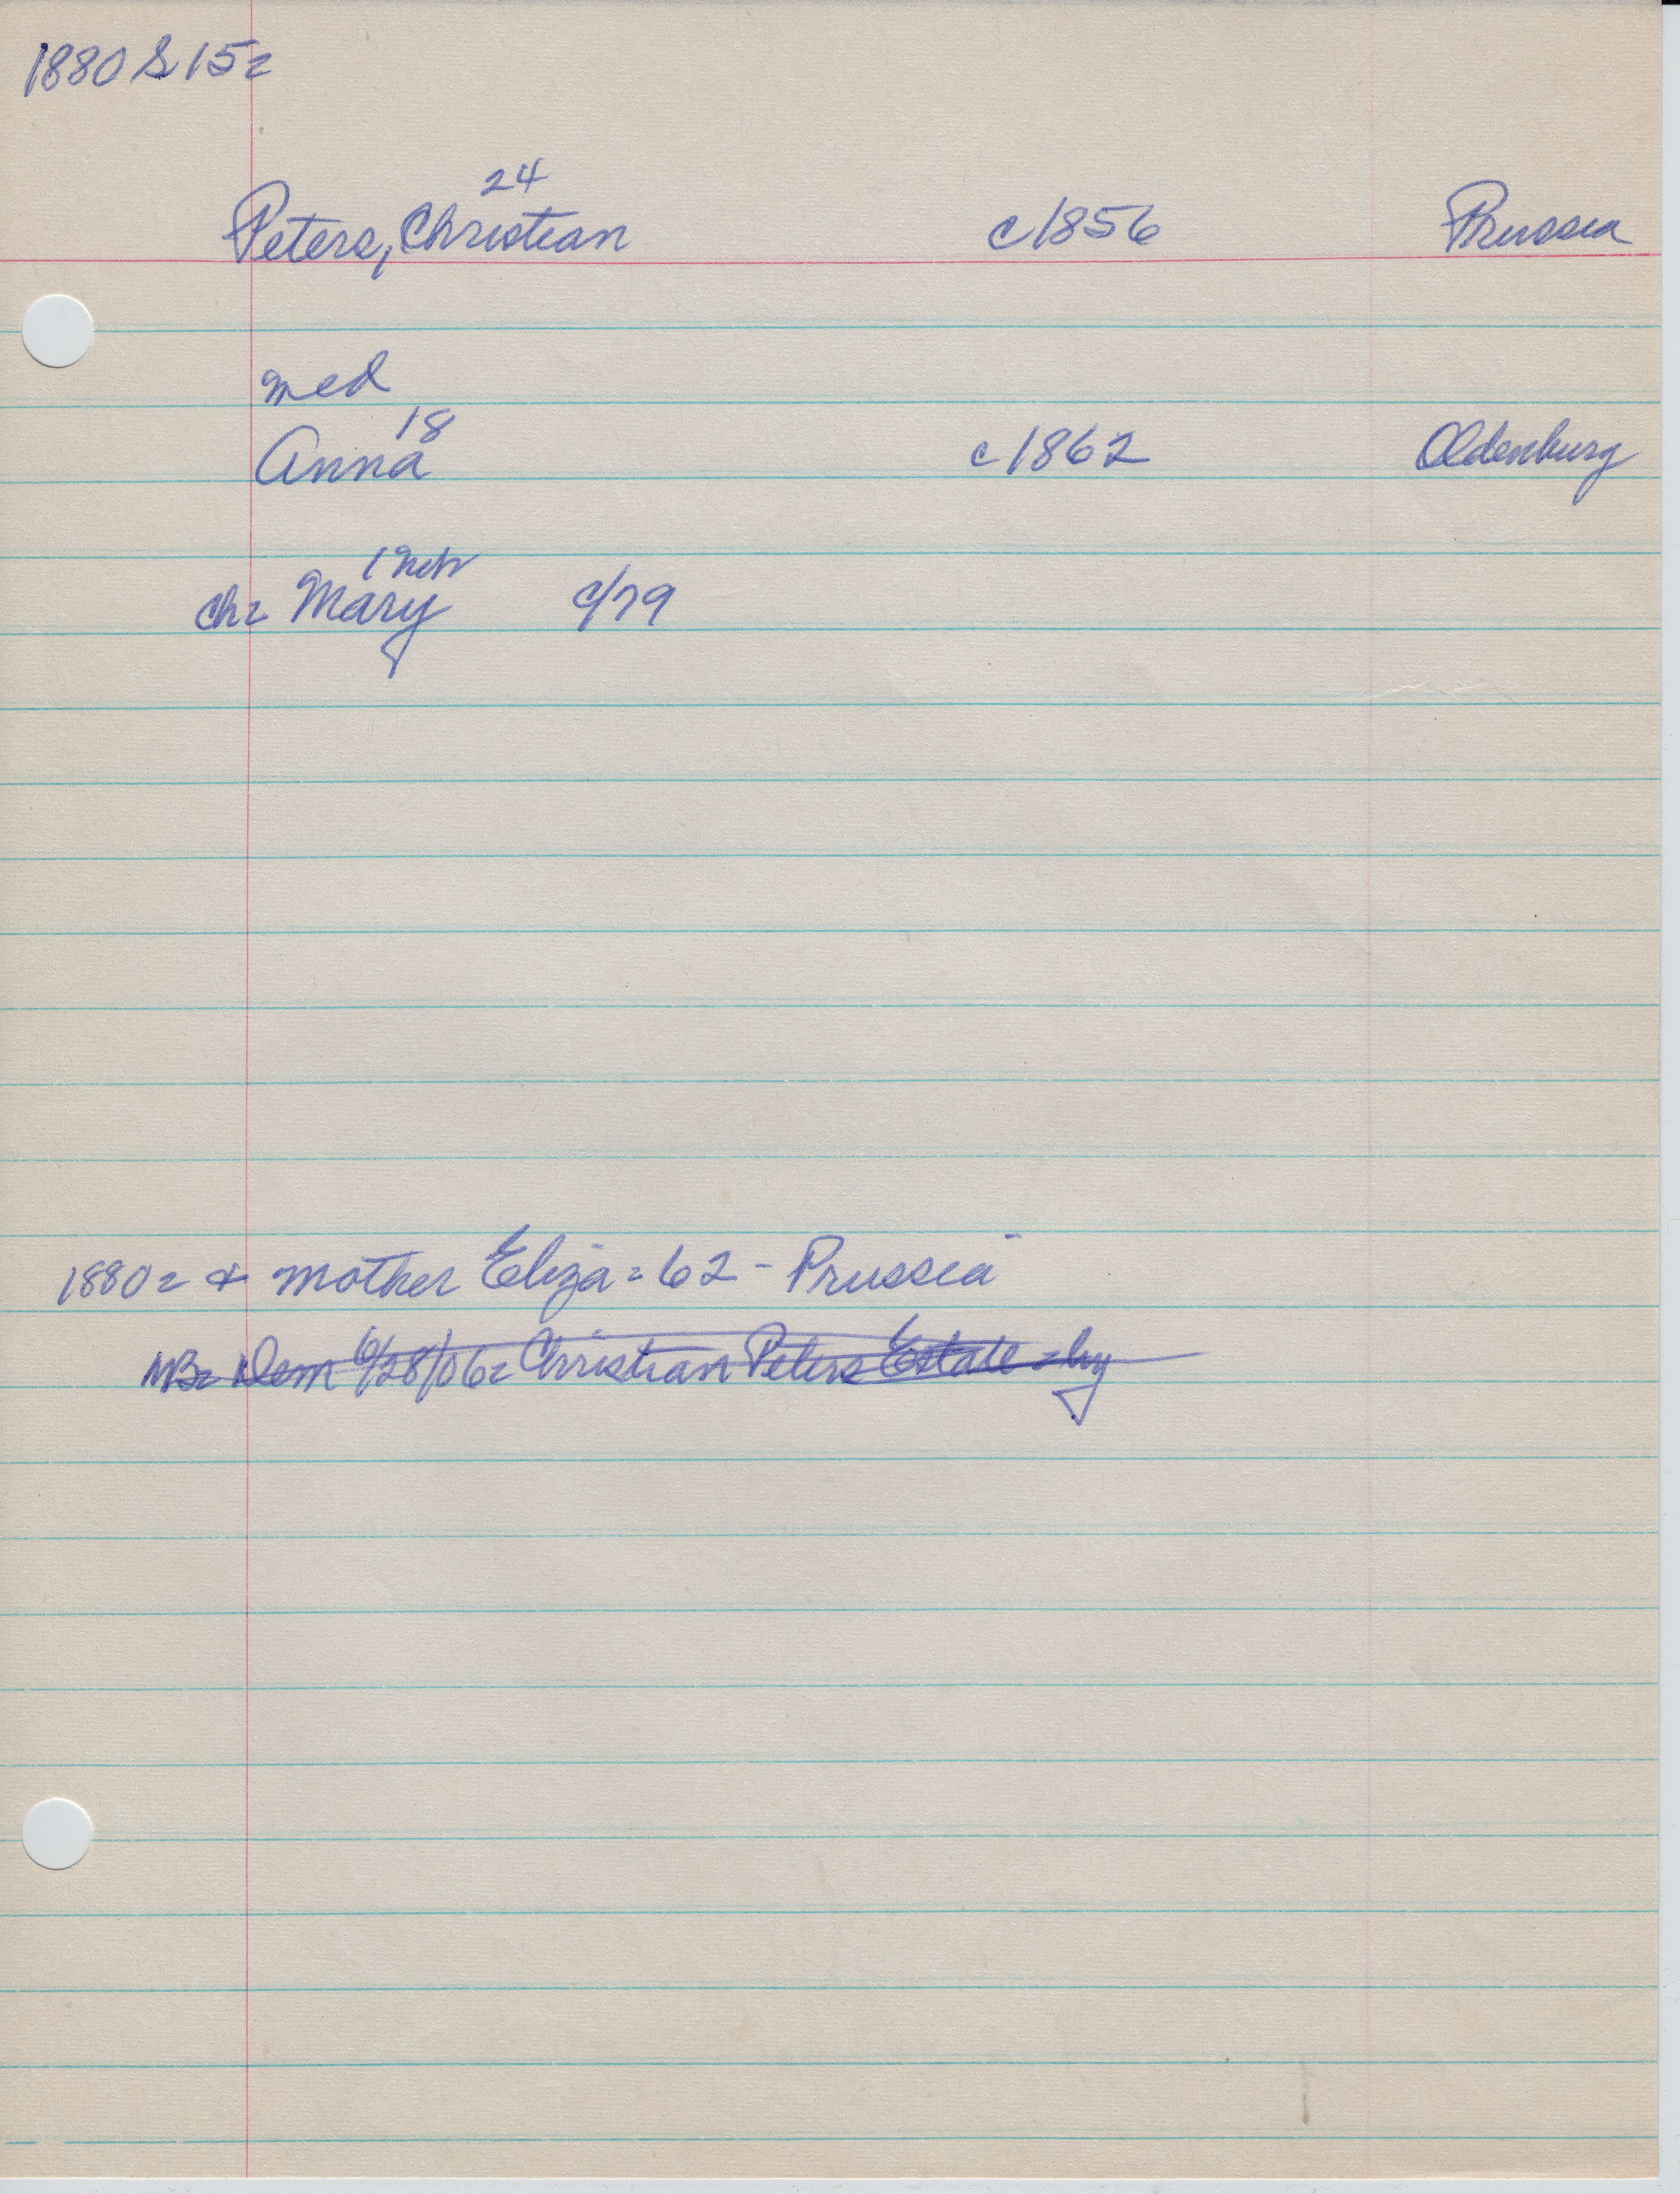 1880 S 15=
24
Peters, Christian c1856 Prussia
med
18
Anna c1862 Oldenburg
1 Neb
ch= Mary c/79
1880= & mother Eliza = 62 - Prussia
NB= Dem 6/28/06= Christian Peters Estate = by